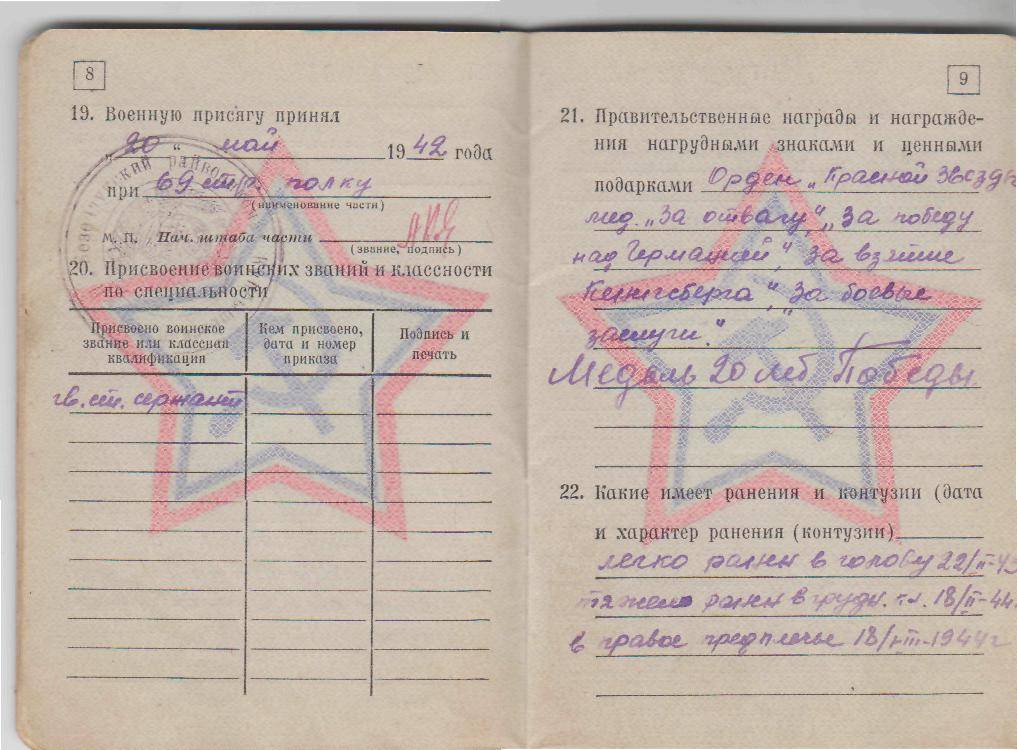 8
19. Военную присягу принял
„ 20 “ май 1942 года
при 69 стр. полку
(наименование части)
М. П. Нач. штаба части
(звание, подпись)
20. Присвоение воинских званий и классности
по специальности
Присвоено воинское звание или классная квалификация
Кем присвоено, дата и номер приказа
Подпись и печать
гв. ст. сержант
9
21. Правительственные награды и награжде-
ния нагрудными знаками и ценными
подарками Орден „Красной Звезды
мед. „За отвагу“, „За победу
над Германией“, „За взятие
Кенигсберга“, „За боевые
заслуги“.
Медаль 20 лет Победы
22. Какие имеет ранения и контузии (дата
и характер ранения (контузии)
легко ранен в голову 22/II-43
тяжело ранен в грудн. кл. 18/II-44
в правое предплечье 18/VIII-1944г